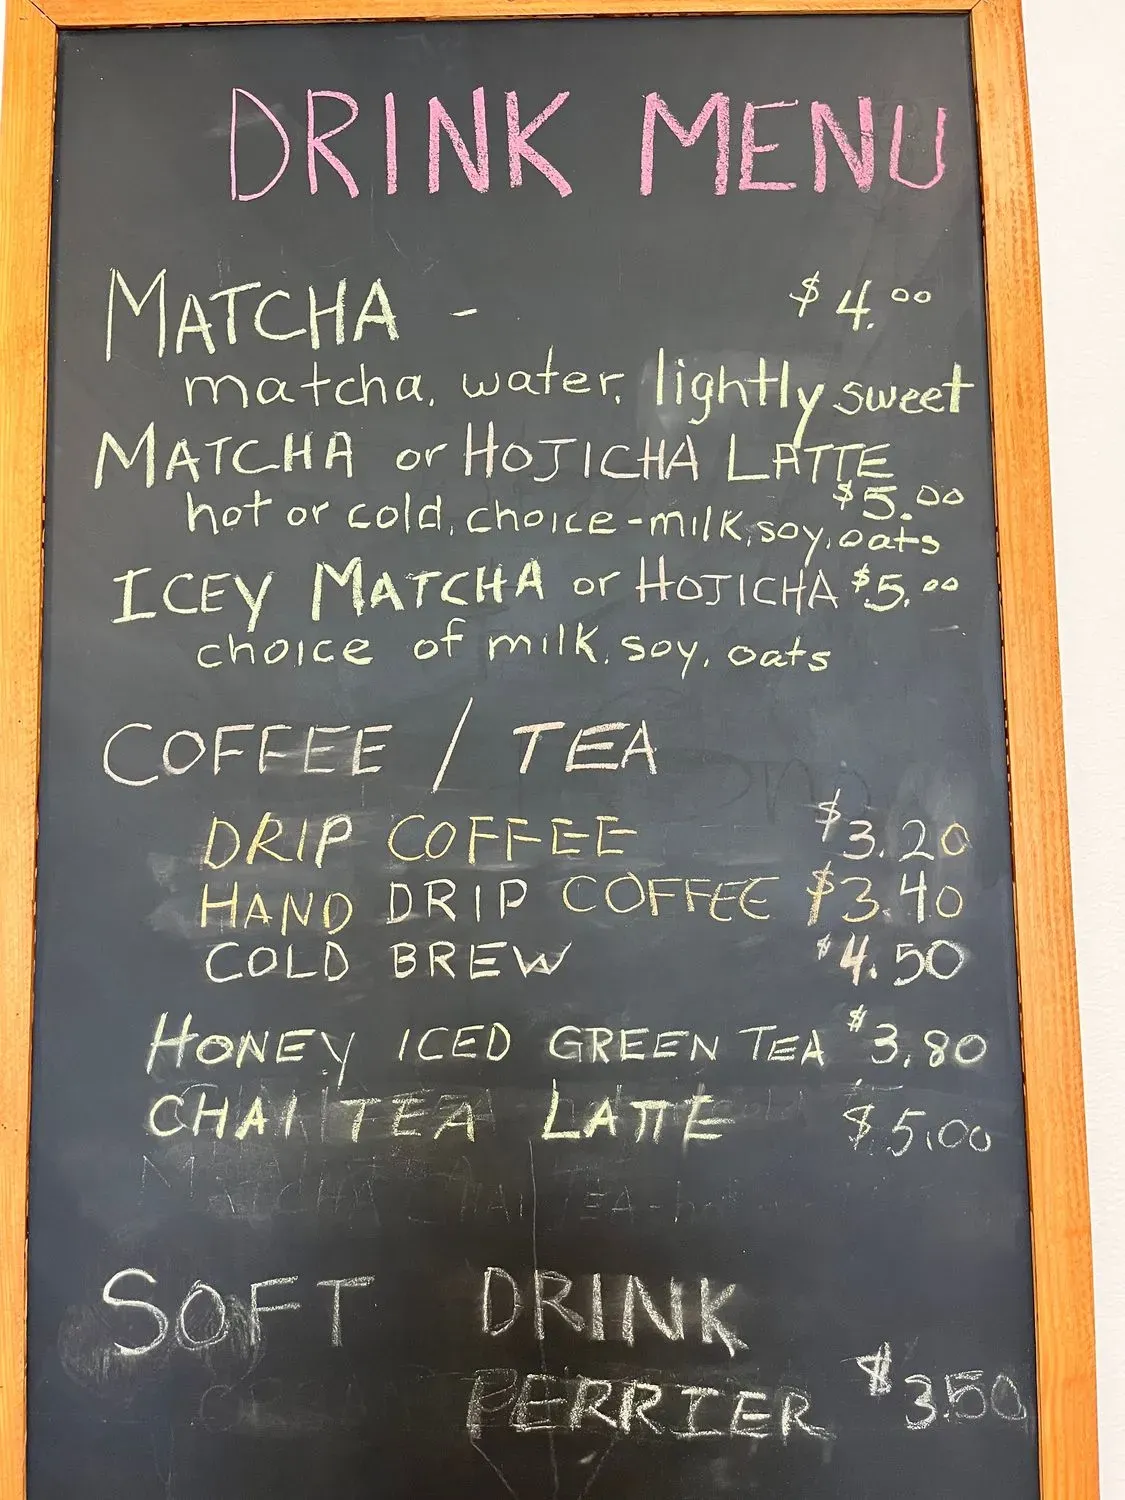 DRINK MENU
MATCHA - $4.00
matcha, water, lightly sweet
MATCHA or HOJICHA LATTE
$5.00
hot or cold, choice-milk, soy, oats
ICEY MATCHA or HOJICHA $5.00
choice of milk, soy, oats
COFFEE / TEA
DRIP COFFEE $3.20
HAND DRIP COFFEE $3.40
COLD BREW $4.50
HONEY ICED GREEN TEA $3.80
CHAI TEA LATTE $5.00
SOFT DRINK
PERRIER $3.50